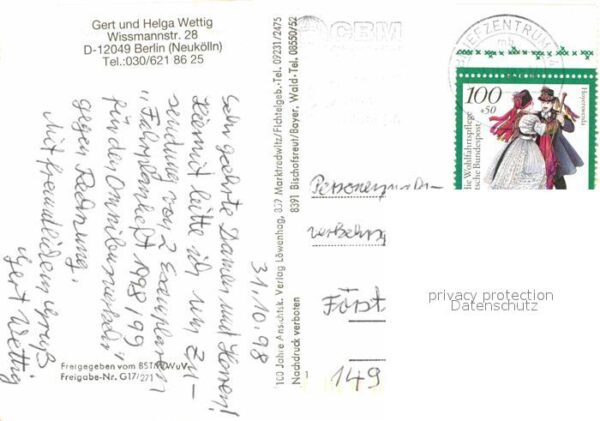 Gert und Helga Wettig
Wissmannstr. 28
D-12049 Berlin (Neukölln)
Tel.:030/621 86 25
31.10.98
Sehr geehrte Damen und Herren!
Hiermit bitte ich um Zu-
sendung von 2 Exemplaren
"Fahrplanheft 1998/99
für den Omnibusverkehr"
gegen Rechnung.
Mit freundlichem Gruß
Gert Wettig
Freigegeben vom
Freigabe-Nr. G17/271
100 Jahre Ansichtsk. Verlag Löwenhag, 837 Marktredwitz/Fichtelgeb.-Tel. 09231/2475
8391 Bischofsreut/Bayer. Wald-Tel. 08550/52
Nachdruck verboten
CBM
BRIEFZENTRUM
100
+50
Hoyerswerda
die Wohlfahrtspflege
Deutsche Bundespost
Forst
149
privacy protection
Datenschutz